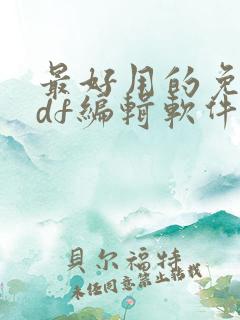 最好用的免
df編輯軟件
貝尔福特
未任同意禁止转载